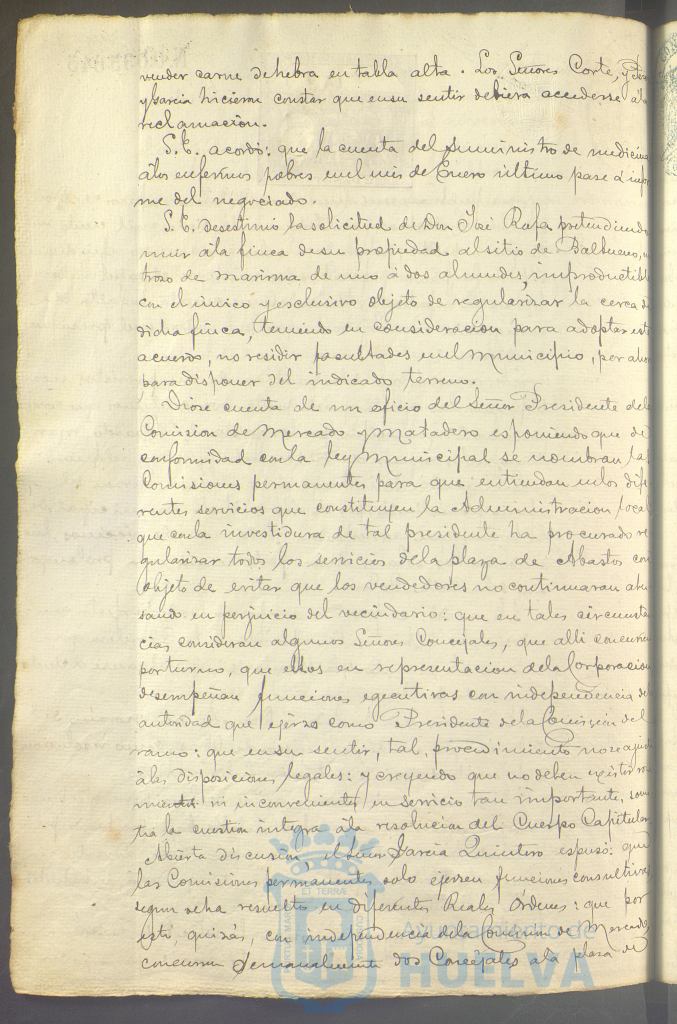 vender carne de hebra en tabla alta. Los Señores Corte,
y Garcia hicieron constar que en su sentir debiera accederse á la
reclamacion.
S. E. acordó: que la cuenta del suministro de medicina
á los enfermos pobres en el mes de Enero último pase á infor
me del negociado.
S. E. desestimó la solicitud de Don José Rafa pretendiendo
unir á la finca de su propiedad al sitio de Balbueno, un
trozo de marisma de uno á dos almudes, improductible
con el único y esclusivo objeto de regularizar la cerca de
dicha finca, teniendo en consideracion para adoptar este
acuerdo, no residir facultades en el Municipio, por ahora
para disponer del indicado terreno.
Diose cuenta de un oficio del Señor Presidente de la
Comision de Mercado y Matadero esponiendo que de
conformidad con la ley Municipal se nombran las
Comisiones permanentes para que entiendan en los dife
rentes servicios que constituyen la Administracion local
que con la investidura de tal presidente ha procurado re
gularizar todos los servicios de la plaza de Abastos con
objeto de evitar que los vendedores no continuaran abu
sando en perjuicio del vecindario: que en tales circunstan
cias consideran algunos Señores Concejales, que alli concurren
por turno, que ellos en representacion de la Corporacion
desempeñan funciones egecutivas con independencia de la
autoridad que ejerzo como Presidente de la Comision del
ramo: que en su sentir, tal procedimiento no se ajusta
á las disposiciones legales: y creyendo que no deben existir
ni inconvenientes en servicio tan importante, some
tia la cuestion integra á la resolucion del Cuerpo Capitular
Abierta discusion, el Señor Garcia Quintero espuso: que
las Comisiones permanentes solo ejercen funciones consultivas
segun se ha resuelto en diferentes Reales Ordenes: que por
esto, quizás, con independencia de la Comision de Mercado
concurren semanalmente dos Concejales á la plaza de
Ayuntamiento de
HUELVA